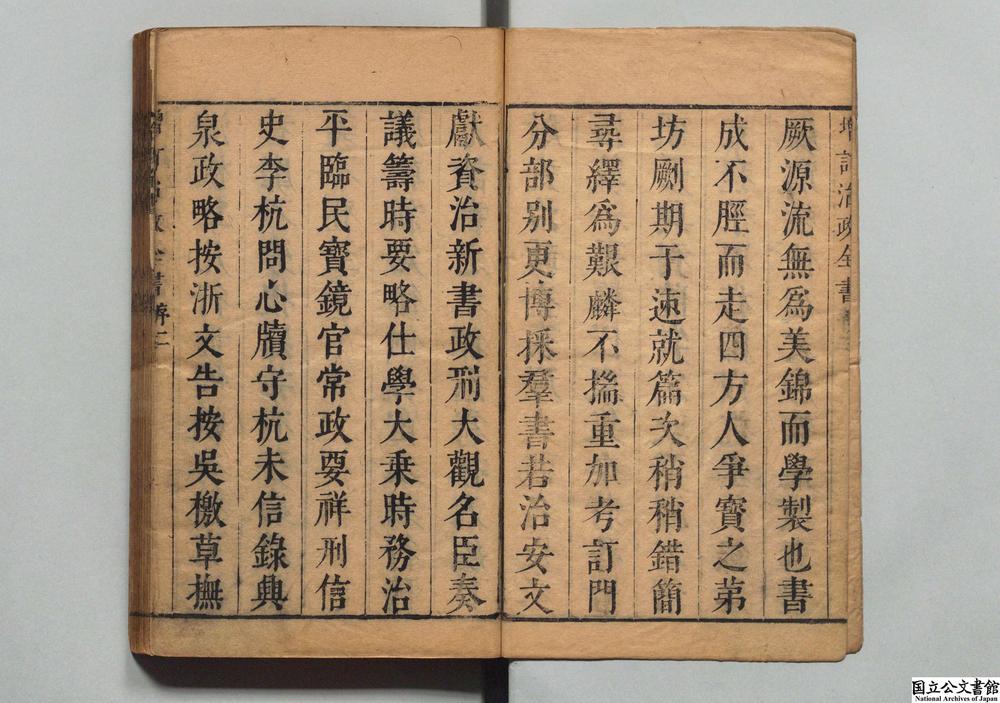 厥源流無為美錦而學製也書
成不脛而走四方人爭寶之苐
坊劂期于速就篇次稍稍錯簡
尋繹為艱麟不揣重加考訂門
分部别更博採羣書若治安文
獻資治新書政刑大觀名臣奏
議籌時要略仕學大乗時務治
平臨民寶鏡官常政要祥刑信
史李杭問心牘守杭未信錄興
泉政略按浙文告按吳檄草撫
増訂治政全書
序二
国立公文書館
National Archives of Japan